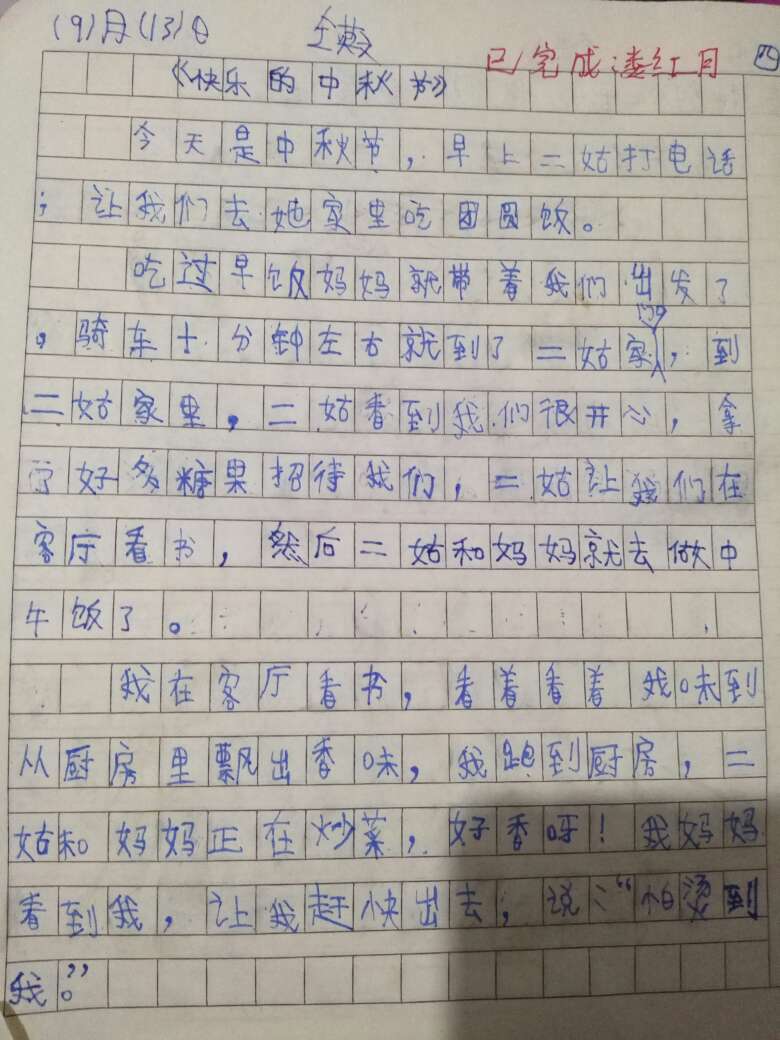 (9)月(13)日
已完成:娄红月
四
《快乐的中秋节》
今天是中秋节,早上二姑打电话
;让我们去她家里吃团圆饭。
吃过早饭妈妈就带着我们出发了
。骑车十分钟左右就到了二姑家门口,到
二姑家里,二姑看到我们很开心,拿
了好多糖果招待我们,二姑让我们在
客厅看书,然后二姑和妈妈就去做中
午饭了。
我在客厅看书,看着看着我味到
从厨房里飘出香味,我跑到厨房,二
姑和妈妈正在炒菜,好香呀!我妈妈
看到我,让我赶快出去,说:“怕烫到
我。”